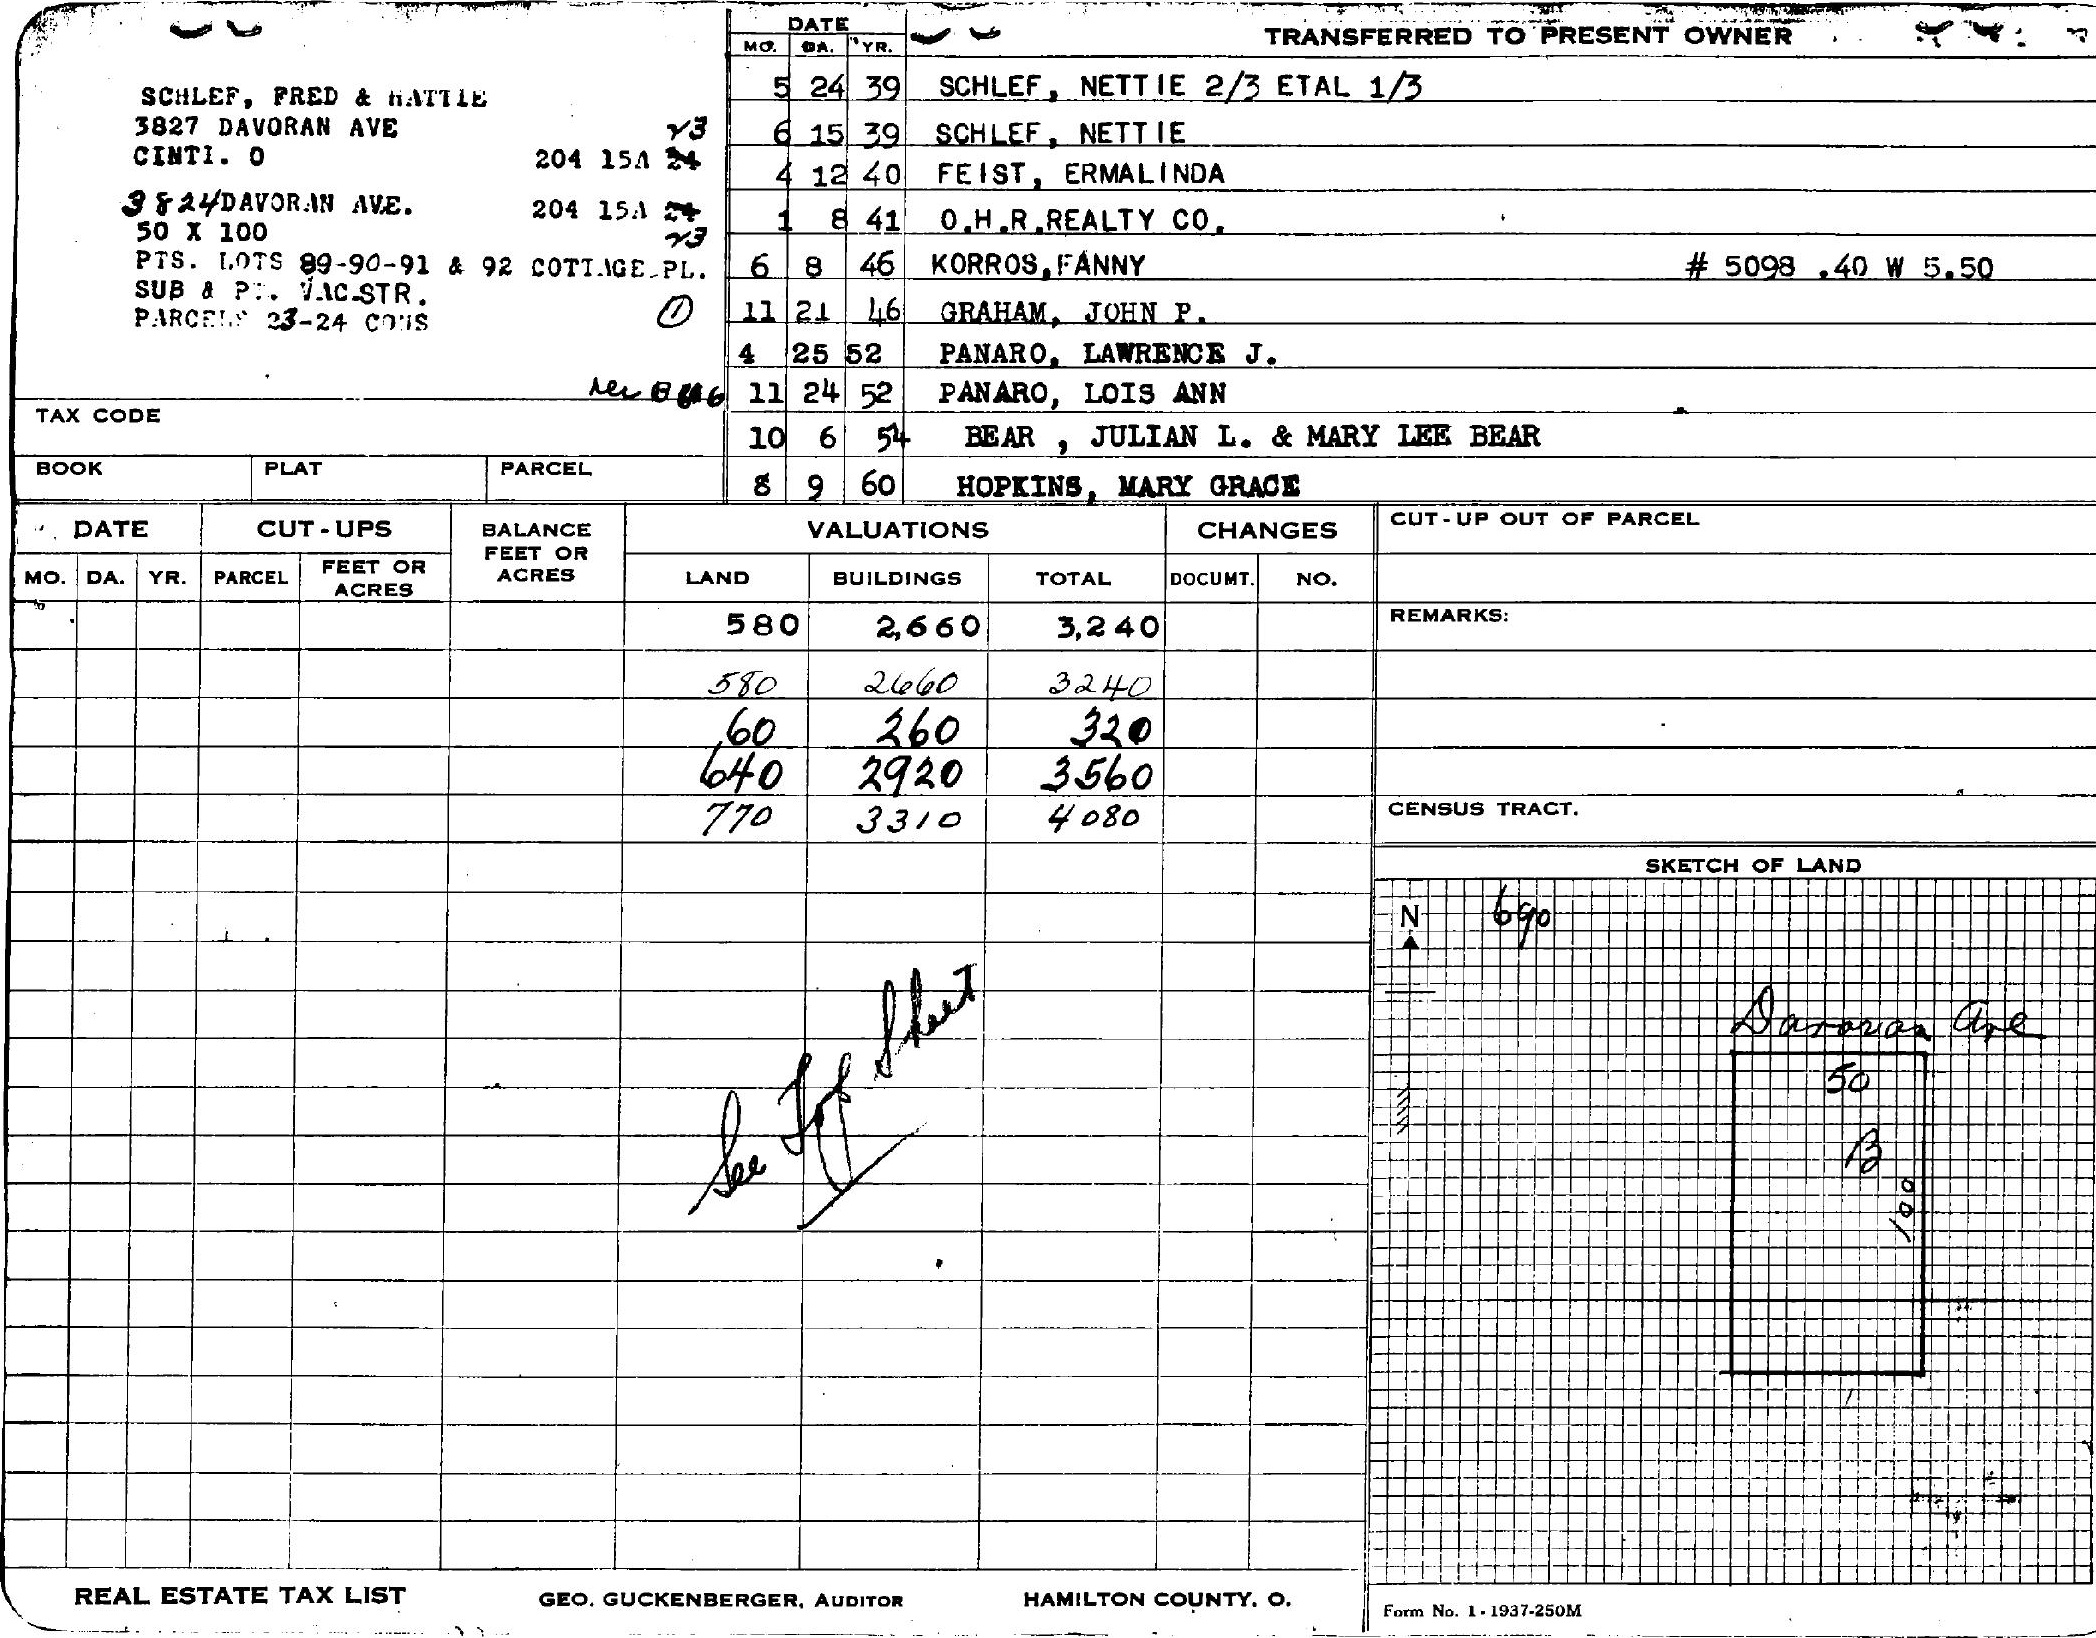 SCHLEF, FRED & HATTIE
3827 DAVORAN AVE 23
CINTI. O 204 15A 24
3824 DAVORAN AVE. 204 15A 24
50 X 100 23
PTS. LOTS 89-90-91 & 92 COTTAGE PL.
SUB & PT. VAC STR.
PARCELS 23-24 CONS 1
TAX CODE
BOOK PLAT PARCEL
DATE TRANSFERRED TO PRESENT OWNER
MO. DA. YR.
5 24 39 SCHLEF, NETTIE 2/3 ETAL 1/3
6 15 39 SCHLEF, NETTIE
4 12 40 FEIST, ERMALINDA
1 8 41 O.H.R.REALTY CO.
6 8 46 KORROS,FANNY # 5098 .40 W 5.50
11 21 46 GRAHAM, JOHN P.
4 25 52 PANARO, LAWRENCE J.
11 24 52 PANARO, LOIS ANN
10 6 54 BEAR , JULIAN L. & MARY LEE BEAR
8 9 60 HOPKINS, MARY GRACE
DATE CUT-UPS BALANCE FEET OR ACRES VALUATIONS CHANGES
MO. DA. YR. PARCEL FEET OR ACRES LAND BUILDINGS TOTAL DOCUMT. NO.
580 2,660 3,240
580 2660 3240
60 260 320
640 2920 3560
770 3310 4080
See Top Sheet
CUT-UP OUT OF PARCEL
REMARKS:
CENSUS TRACT.
SKETCH OF LAND
N 690
Davoran Ave
50
B
100
REAL ESTATE TAX LIST GEO. GUCKENBERGER, AUDITOR HAMILTON COUNTY, O.
Form No. 1-1937-250M